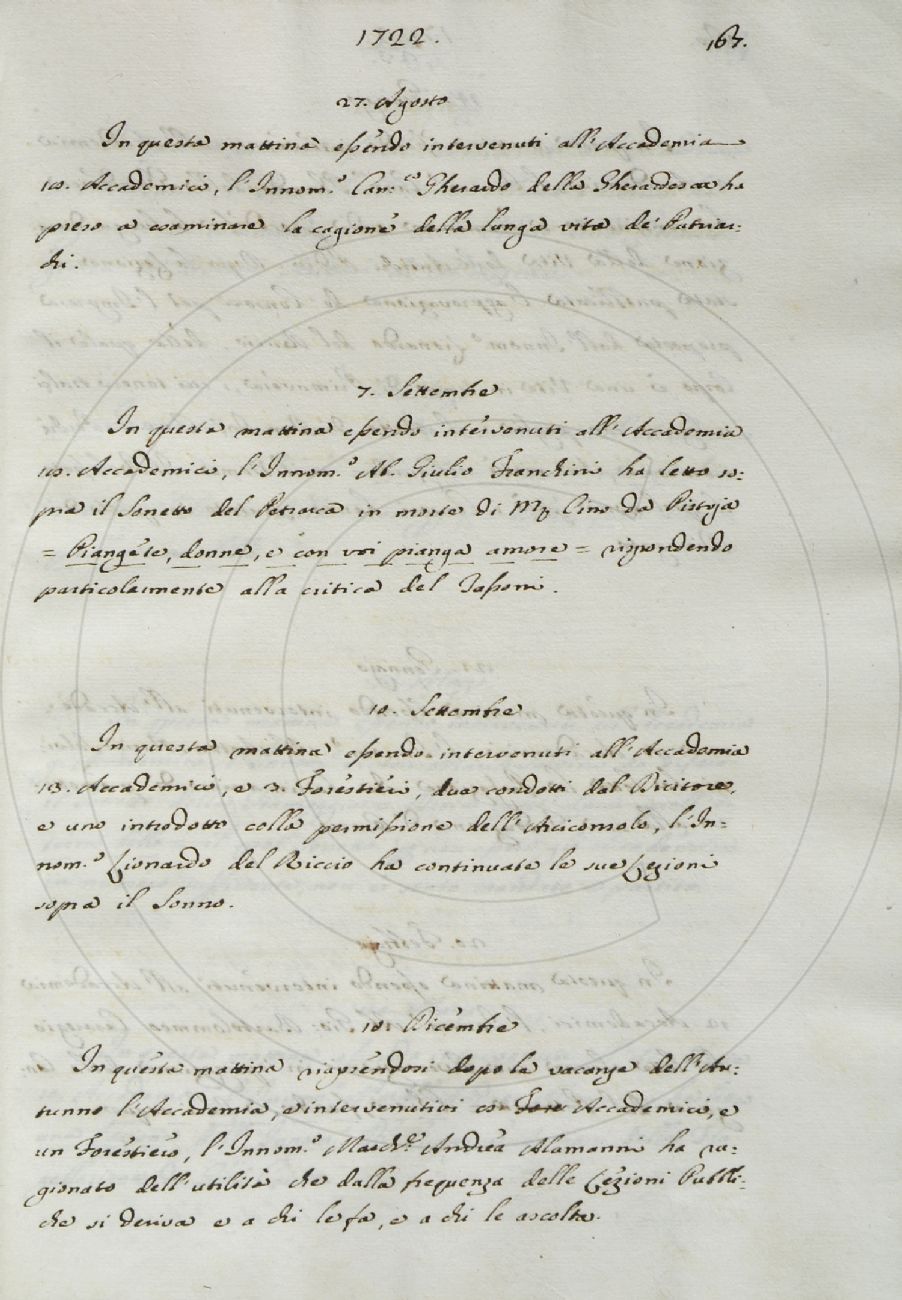 1722.
167.
27. Agosto
In questa mattina essendo intervenuti all'Accademia
10. Accademici, l'Innom.º Can.co Gherardo della Gherardesca ha
preso a esaminare la cagione della lunga vita de' Patriar:
chi.
7. Settembre
In questa mattina essendo intervenuti all'Accademia
10. Accademici, l'Innom.º Ab. Giulio Franchini ha letto so:
pra il Sonetto del Petrarca in morte di Mr Cino da Pistoja
= Piangete, donne, e con voi pianga amore = rispondendo
particolarmente alla critica del Tassoni.
10. Settembre
In questa mattina essendo intervenuti all'Accademia
13. Accademici, e 3. Forestieri, due condotti dal Dicitore,
e uno introdotto colla permissione dell'Arciconsolo, l'In=
nom.º Lionardo del Riccio ha continuate le sue Lezioni
sopra il Sonno.
10. Dicembre
In questa mattina riaprendosi dopo le vacanze dell'Au:
tunno l'Accademia, e intervenutivi Accademici, e
un Forestiero, l'Innom.º March.e Andrea Alamanni ha ra:
gionato dell'utilità che dalla frequenza delle Lezioni Pubbli:
che si deriva e a chi le fa, e a chi le ascolta.